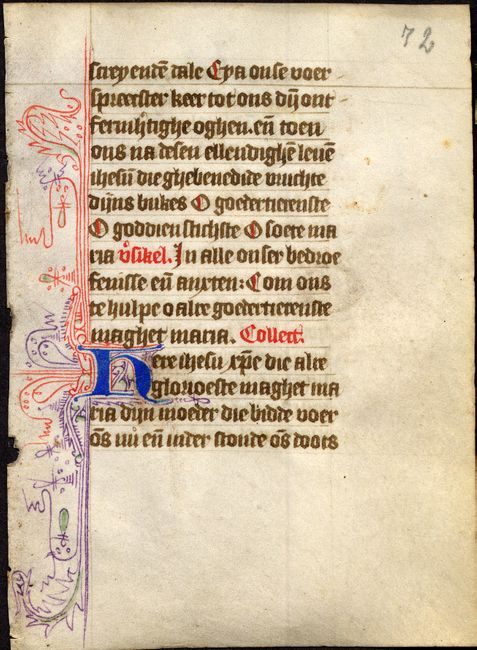 72
screyende dale Eya onse voer
spreecster keer tot ons dyn ont
fermhertighe oghen. eñ toen
ons na desen ellendighē levē
ihesū die ghebenedide vruchte
dijns bukes O goedertierenste
O goddienstichste O soete ma
ria v̊sikel. In alle onser bedroe
fenisse eñ anxten: Com ons
te hulpe o alre goedertierenste
maghet maria. Collect.
Here ihesu xp̄e die alre
glorioeste maghet ma
ria dijn moeder die bidde voer
ōs nu eñ inder stonde ōs doots